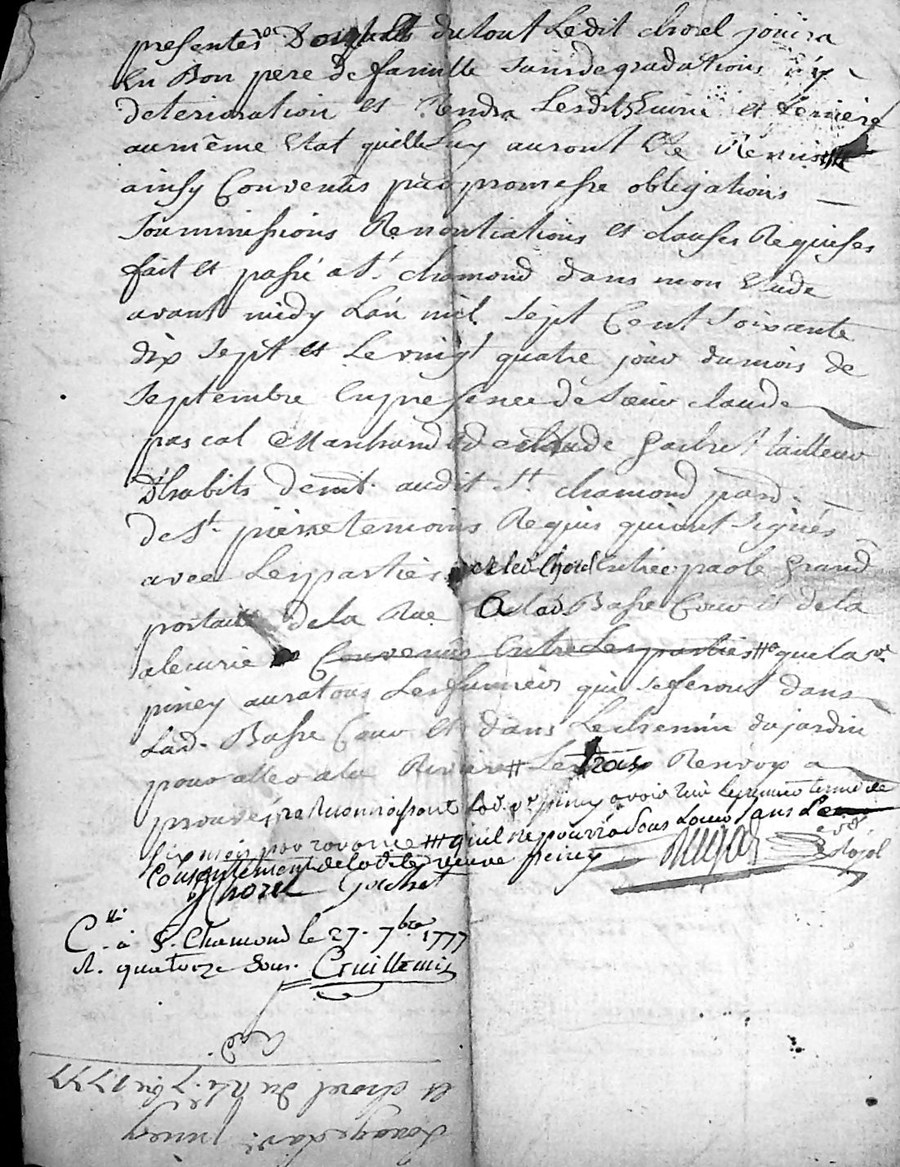 presentes Desquels du tout Ledit chorel jouira
En Bon pere de famille sans degradations ny
deterioration et Rendra Lesdit Ecurie et
au même Etat quelle Luy auront Eté Remis
ainsy Convenus par promesse obligations
Soummissions Renontiations et clauses Requises
fait et passé a St. chamond dans mon Etude
avant midy L'an mil sept Cent soixante
dix sept et Le vingt quatre jour du mois de
septembre En presence de sieur claude
pascal Marchand et de claude tailleur
D'habits demt. audit St. chamond par.
de St. pierre temoins Requis qui ont signés
avec Les parties et led. Chorel Entrée par le Grand
portail de la Rue a lad. Basse Cour et de la
alecurie Convenus Entre Les parties que la ve.
piney aura tous Les fumiers qui se feront dans
Lad. Basse Cour et dans Le chemin du jardin
pour aller a la Riviere Les trois Renvoy a
prouvés reconnoissant lad. ve. piney avoir reçu le premier terme de
six mois par avance qu'il ne pourra sous Louer sans Le
Consentement de lad. veuve piney
Chorel
C. à S. Chamond le 27. 7bre 1777
R. quatorze sous. Guillemin
Louage par ve. piney
et chorel du 24. 7bre 1777